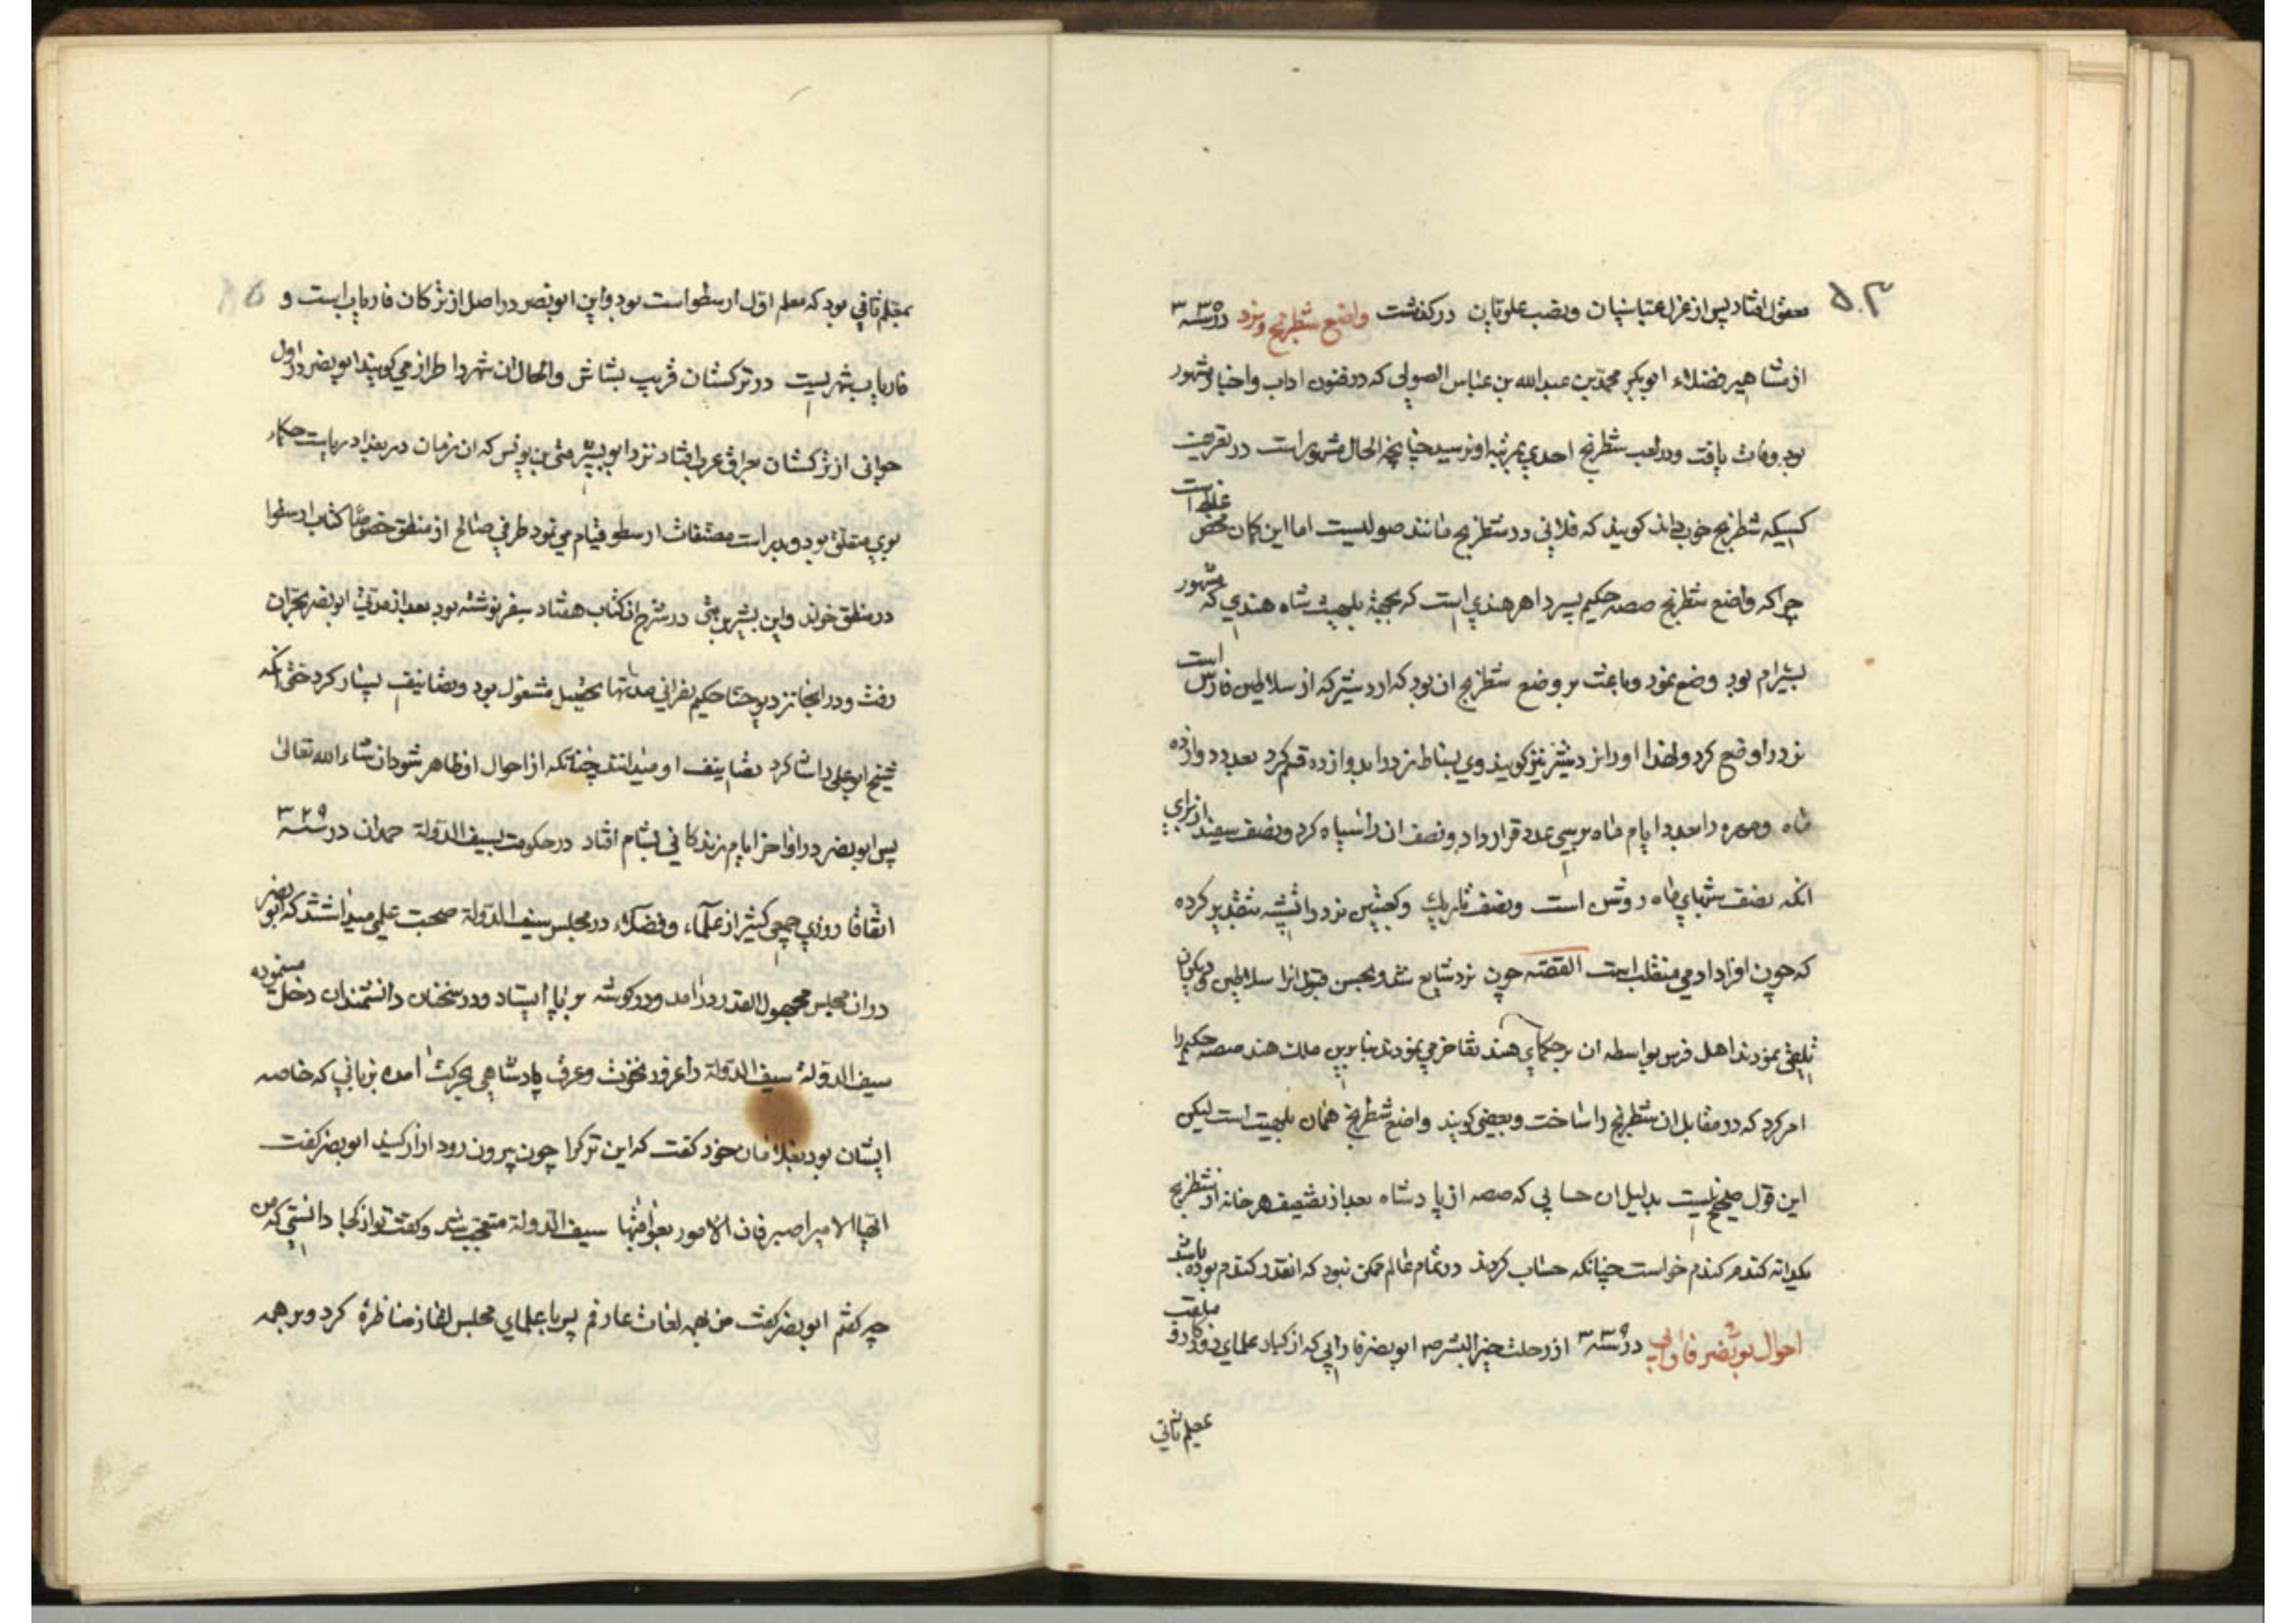 ۵۰۳
معقول افتاد پس از عزل عباسیان و نصب علویان درگذشت واضع شطرنج و نرد در سنه ۳۳۵
از مشاهیر فضلاء ابوبکر محمد بن عبدالله بن عباس الصولی که در فنون اداب و اخبار مشهور
بود وفات یافت و در لعب شطرنج احدی بمرتبه او نرسید چنانچه الحال مشهور است در تعریف
کسیکه شطرنج خوب داند کویند که فلانی در شطرنج مانند صولیست اما این کمان محض غلط است
چرا که واضع شطرنج صصه حکیم پسر داهر هندی است که بجهة بلهیث شاه هندی که مشهور
بشیرام بود وضع نمود و باعث بر وضع شطرنج ان بود که اردشیر که از سلاطین فارس است
نرد را وضع کرد و لهذا او را نردشیر نیز کویند وی بساط نرد را بدوازده قسم کرد بعدد دوازده
ماه و مهره را بعدد ایام ماه بر سی عدد قرار داد و نصف ان را سیاه کرد و نصف سفید از برای
انکه نصف شبهای ماه روشن است و نصف تاریک و کعبتین نرد را تشبیه بتقدیر کرده
که چون افراد ادمی منقلب است القصه چون نرد شایع شد و بحسن قبول انرا سلاطین و بزرکان
تلقی نمودند اهل فرس بواسطه ان بر حکمای هند تفاخر می نمودند بنابرین ملک هند صصه حکیم را
امر کرد که در مقابل ان شطرنج را ساخت و بعضی کویند واضع شطرنج همان بلهیت است لیکن
این قول صحیح نیست بدلیل ان حسابی که صصه از پادشاه بعد از تضعیف هر خانه از شطرنج
یکدانه کندم کندم خواست چنانکه حساب کردند در تمام عالم ممکن نبود که انقدر کندم بوده باشد
احوال ابونصر فارابی در سنه ۳۳۹ از رحلت خیر البشر ص ابونصر فارابی که از کبار علمای روزکار و ملقب
بمعلم ثانی
بمعلم ثانی بود که معلم اول ارسطو است بود و این ابونصر در اصل از ترکان فاریاب است و
فاریاب شهریست در ترکستان قریب بشاش و الحال ان شهر را طراز می کویند ابونصر در اول
جوانی از ترکستان بعراق عرب افتاد نزد ابو بشر متی بن یونس که ان زمان در بغداد ریاست حکماء
بوی متعلق بود و بدراست مصنفات ارسطو قیام می نمود طرفی صالح از منطق خصوصا کتاب ارسطو را
در منطق خواند و این بشر بن متی در شرح ان کتاب هفتاد سفر نوشته بود بعد از مدتی ابونصر بحران
رفت و در انجا نزد یوحنا حکیم نصرانی مدتها بتحصیل مشغول بود و تصانیف بسیار کرد حتی انکه
شیخ ابو علی را شاکرد تصانیف او میدانند چنانکه از احوال او ظاهر شود ان شاء الله تعالی
پس ابونصر در اواخر ایام زندکانی بشام افتاد در حکومت سیف الدولة حمدان در سنه ۳۲۹
اتفاقا روزی جمعی کثیر از علماء و فضلاء در مجلس سیف الدولة صحبت علمی میداشتند که ابو نصر
در ان مجلس مجهول القدر درامد و در کوشه بر پا ایستاد و در سخنان دانشمندان دخل مینموده
سیف الدولة سیف الدولة را غرور نخوت و عرق پادشاهی بحرکت امده بزبانی که خاصه
ایشان بود بغلامان خود کفت که این ترک را چون بیرون رود ازار کنید ابونصر کفت
ایها الامیر اصبر فان الامور بعواقبها سیف الدولة متعجب شد و کفت تو از کجا دانستی که من
چه کفتم ابونصر کفت من بهمه لغات عارفم پس با علمای مجلس اغاز مناظرة کرد و بر همه